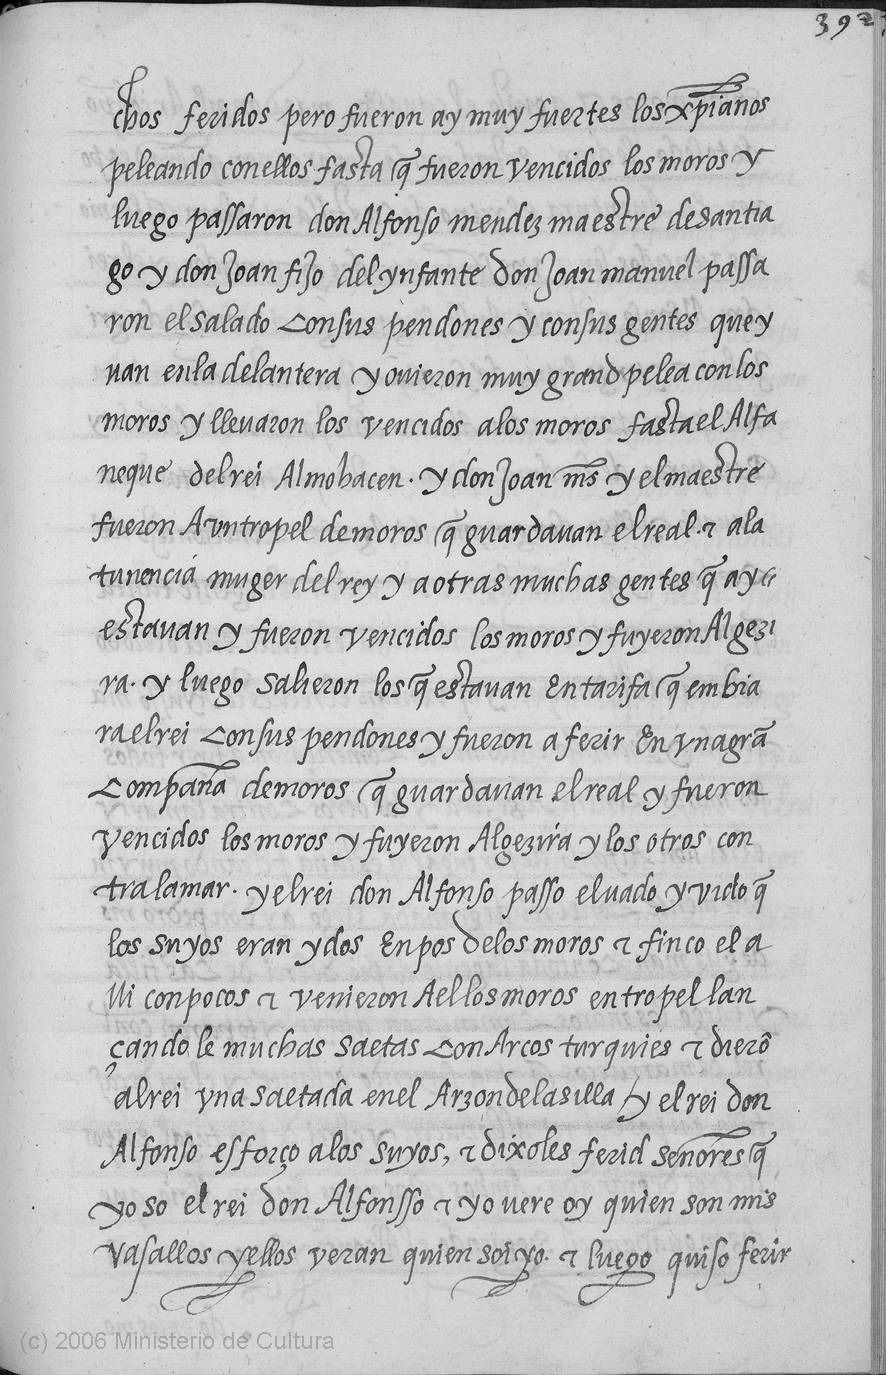 392
chos feridos pero fueron ay muy fuertes los xp̃ianos
peleando conellos fasta q̃ fueron vencidos los moros y
luego passaron don Alfonso mendez maestre de santia
go y don Joan fijo del ynfante don Joan manuel passa
ron el salado consus pendones y consus gentes que y
uan enla delantera y ouieron muy grand pelea con los
moros y lleuaron los vencidos alos moros fasta el Alfa
neque del rei Almohacen. y don Joan mñs y el maestre
fueron A vntropel de moros q̃ guardauan el real. ⁊ ala
tunencia muger del rey y a otras muchas gentes q̃ ay
estauan y fueron vencidos los moros y fuyeron Algezi
ra. y luego salieron los q̃ estauan en tarifa q̃ embia
ra el rei consus pendones y fueron a ferir en vna grã
compaña de moros q̃ guardauan el real y fueron
vencidos los moros y fuyeron Algezira y los otros con
tra la mar. y el rei don Alfonso passo el uado y vido q̃
los suyos eran ydos en pos de los moros ⁊ finco el a
lli con pocos ⁊ venieron A el los moros en tropel lan
çando le muchas saetas con Arcos turquies ⁊ dierõ
al rei vna saetada en el Arzon de la silla / y el rei don
Alfonso esforço a los suyos, ⁊ dixoles ferid señores q̃
yo so el rei don Alfonsso ⁊ yo vere oy quien son mis
vasallos y ellos veran quien soi yo. ⁊ luego quiso ferir
(c) 2006 Ministerio de Cultura